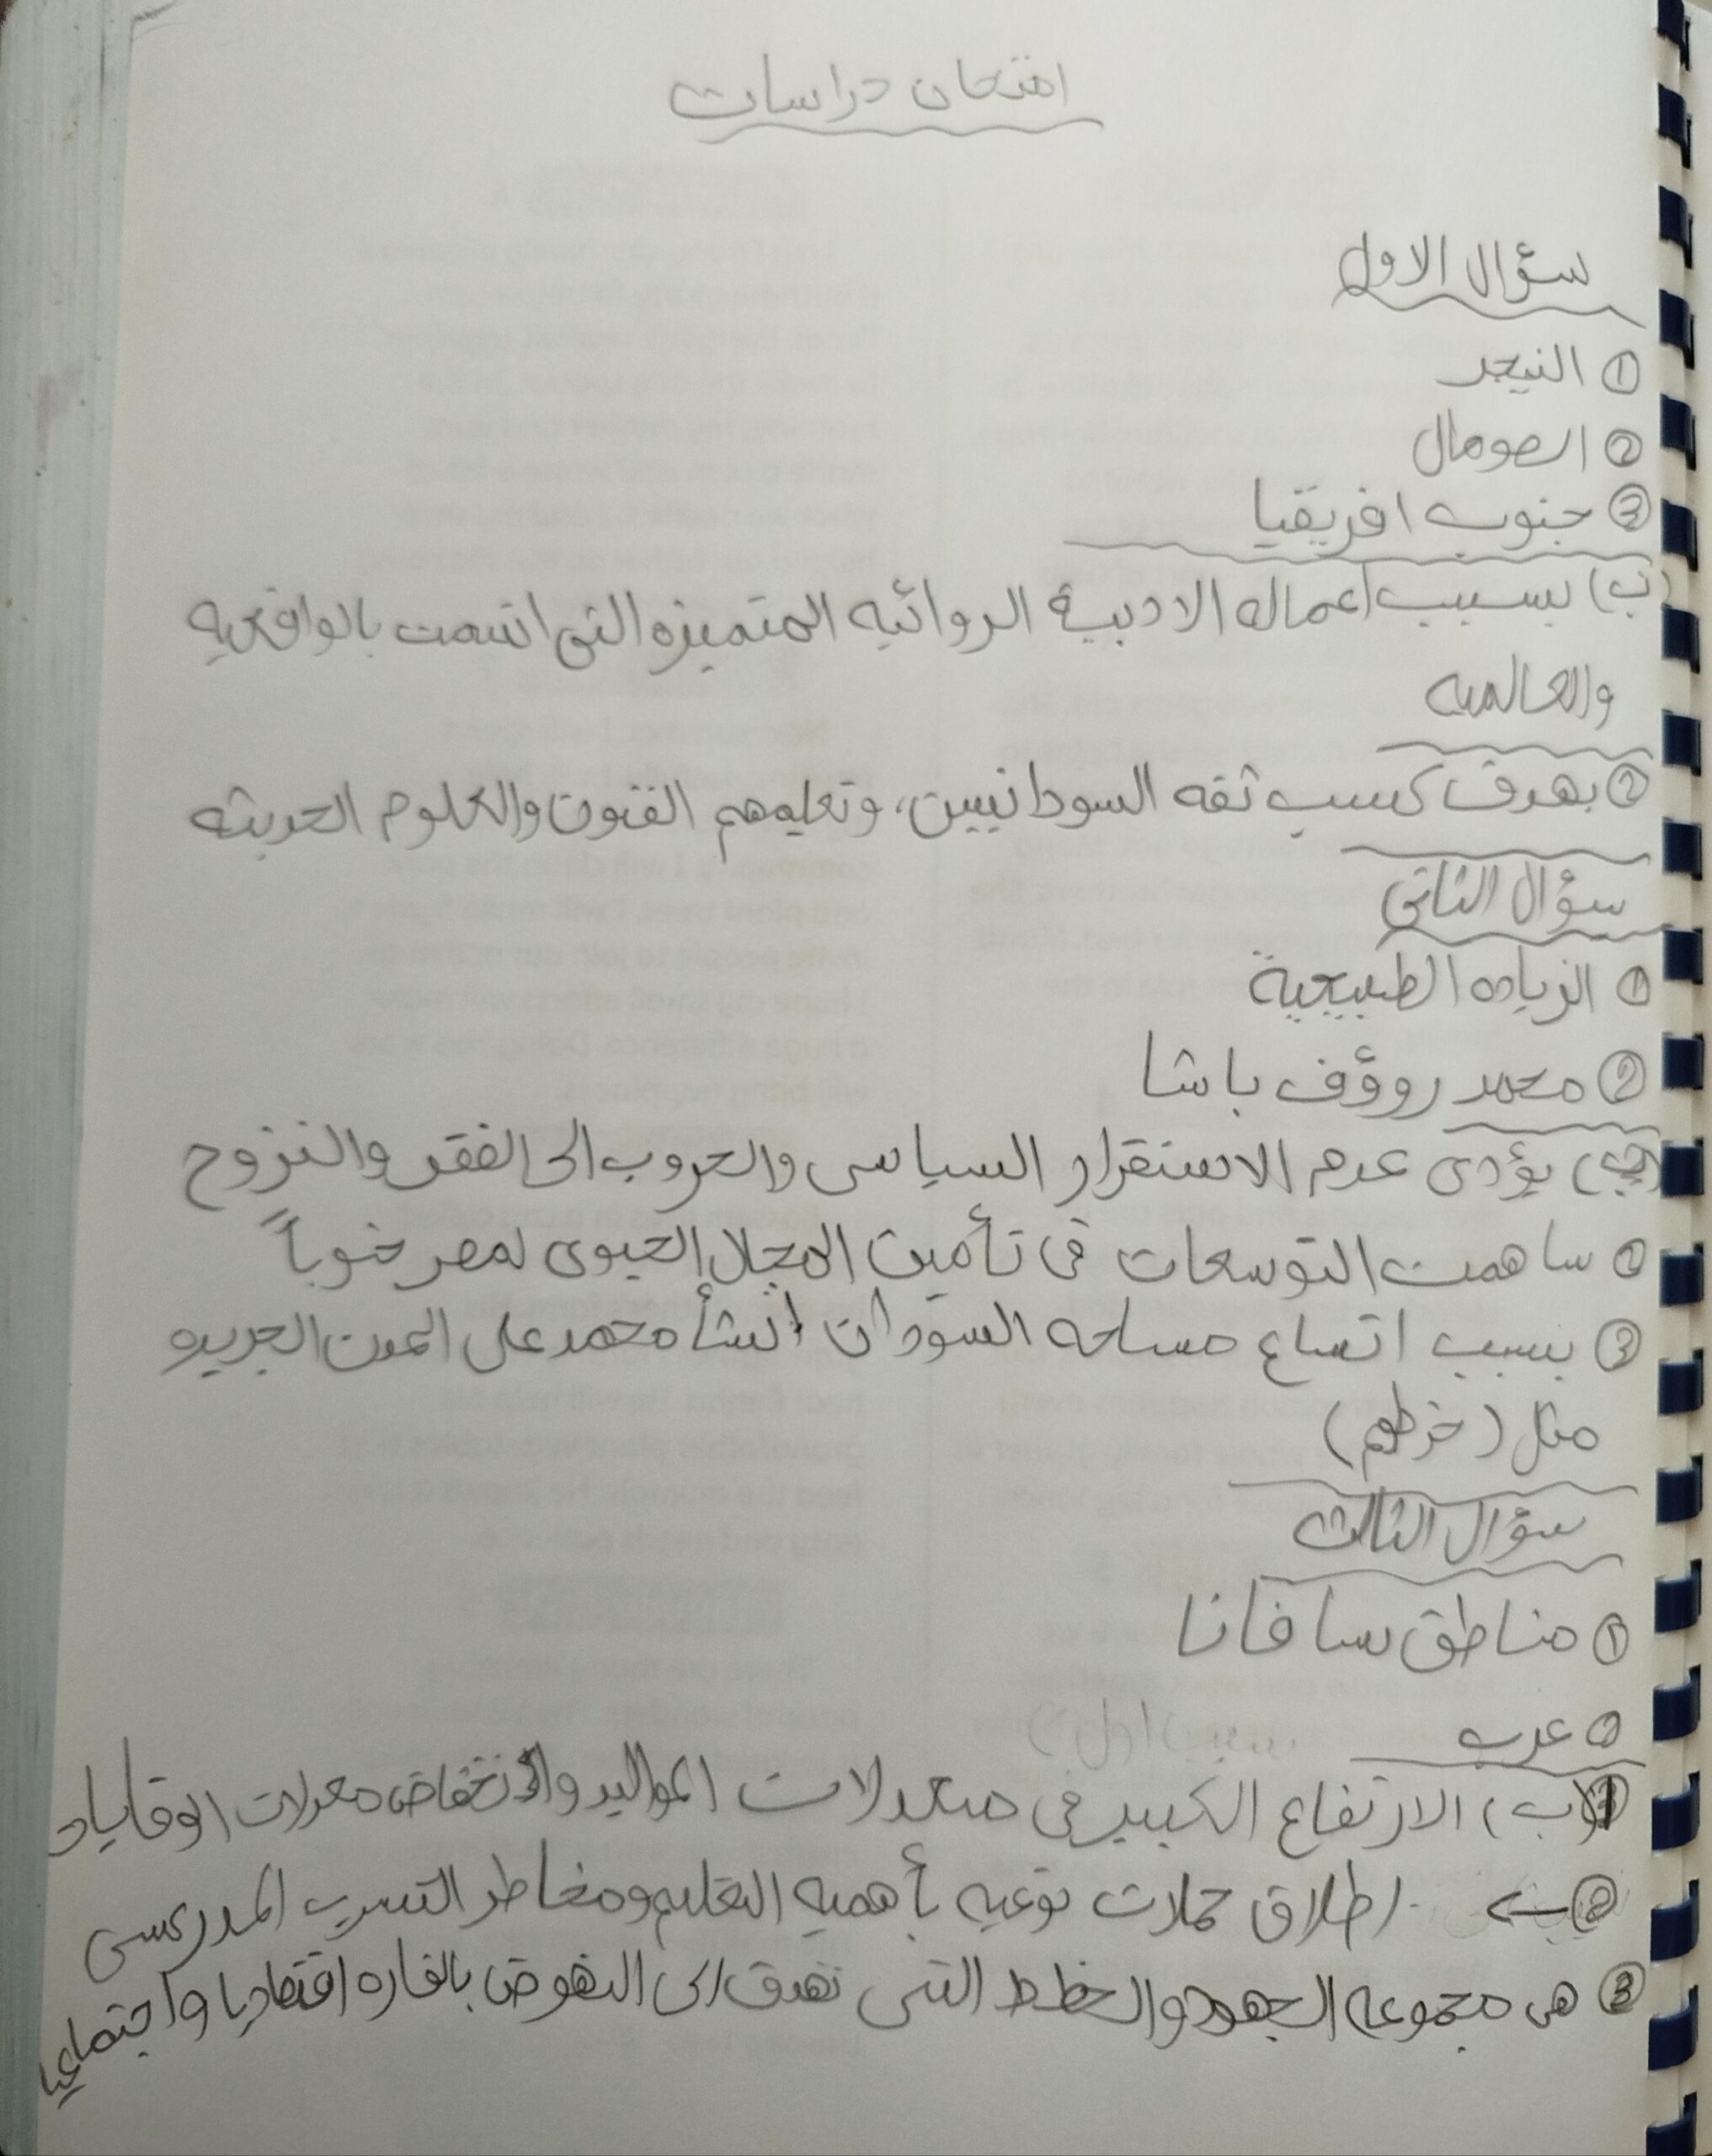 امتحان دراسات
سؤال الاول
① النيجر
② الصومال
③ جنوب افريقيا
(ب) بسبب اعماله الادبية الروائيه المتميزه التى اتسمت بالواقعيه
والعالميه
② بهدف كسب ثقه السودانيين، وتعليمهم الفنون والعلوم الحديثه
سؤال الثانى
① الزياده الطبيعية
② محمد روؤف باشا
(ب) يؤدى عدم الاستقرار السياسى والحروب الى الفقر والنزوح
② ساهمت التوسعات فى تأمين المجال الحيوى لمصر جنوباً
③ بسبب اتساع مساحه السودان انشأ محمد على المدن الجديده
مثل (خرطوم)
سؤال الثالث
① مناطق سافانا
② عرب
ب) الارتفاع الكبير فى معدلات المواليد والانخفاض معدلات الوفايات
② اطلاق حملات توعيه بأهميه التعليم ومخاطر التسرب المدرسى
③ هى مجموعه الجهود والخطط التى تهدف الى النهوض بالقاره اقتصاديا واجتماعيا